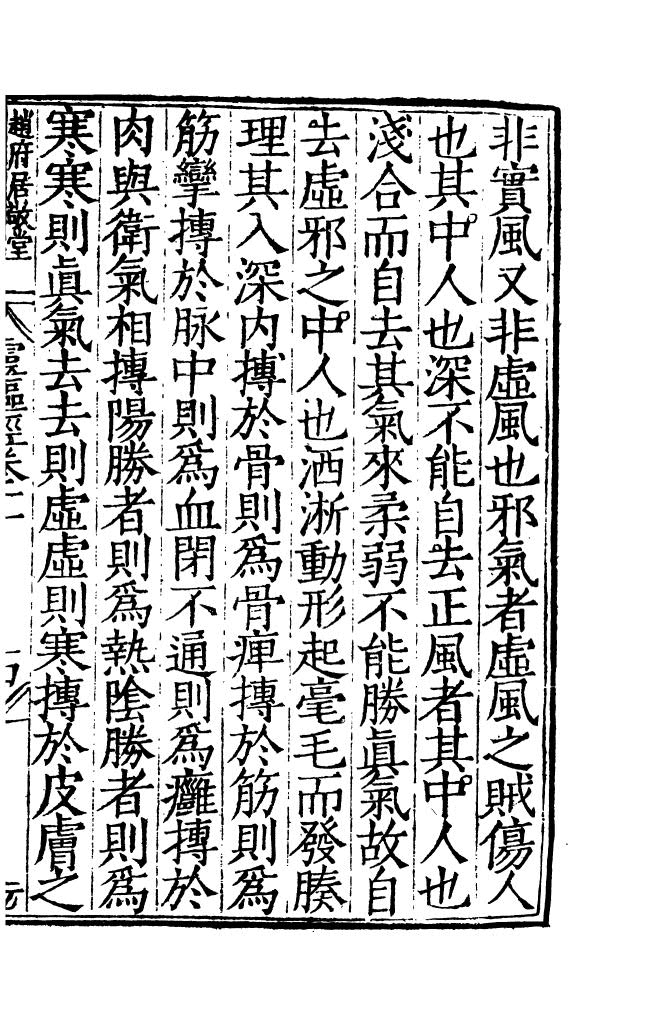 非實風又非虛風也邪氣者虛風之賊傷人
也其中人也深不能自去正風者其中人也
淺合而自去其氣來柔弱不能勝眞氣故自
去虛邪之中人也洒淅動形起毫毛而發腠
理其入深内摶於骨則爲骨痺摶於筋則爲
筋攣摶於脉中則爲血閉不通則爲癰摶於
肉與衛氣相摶陽勝者則爲熱陰勝者則爲
寒寒則眞氣去去則虛虛則寒摶於皮膚之
趙府居敬堂